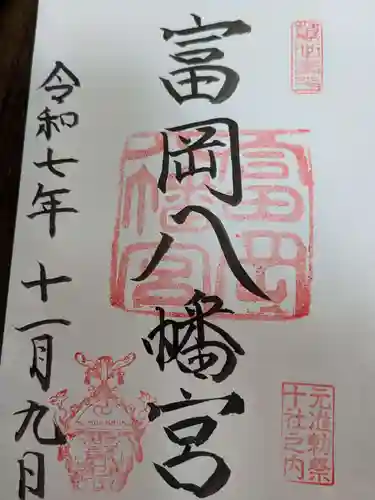 富岡八幡宮
令和七年十一月九日
富岡
八幡宮
元准勅祭
十社之内